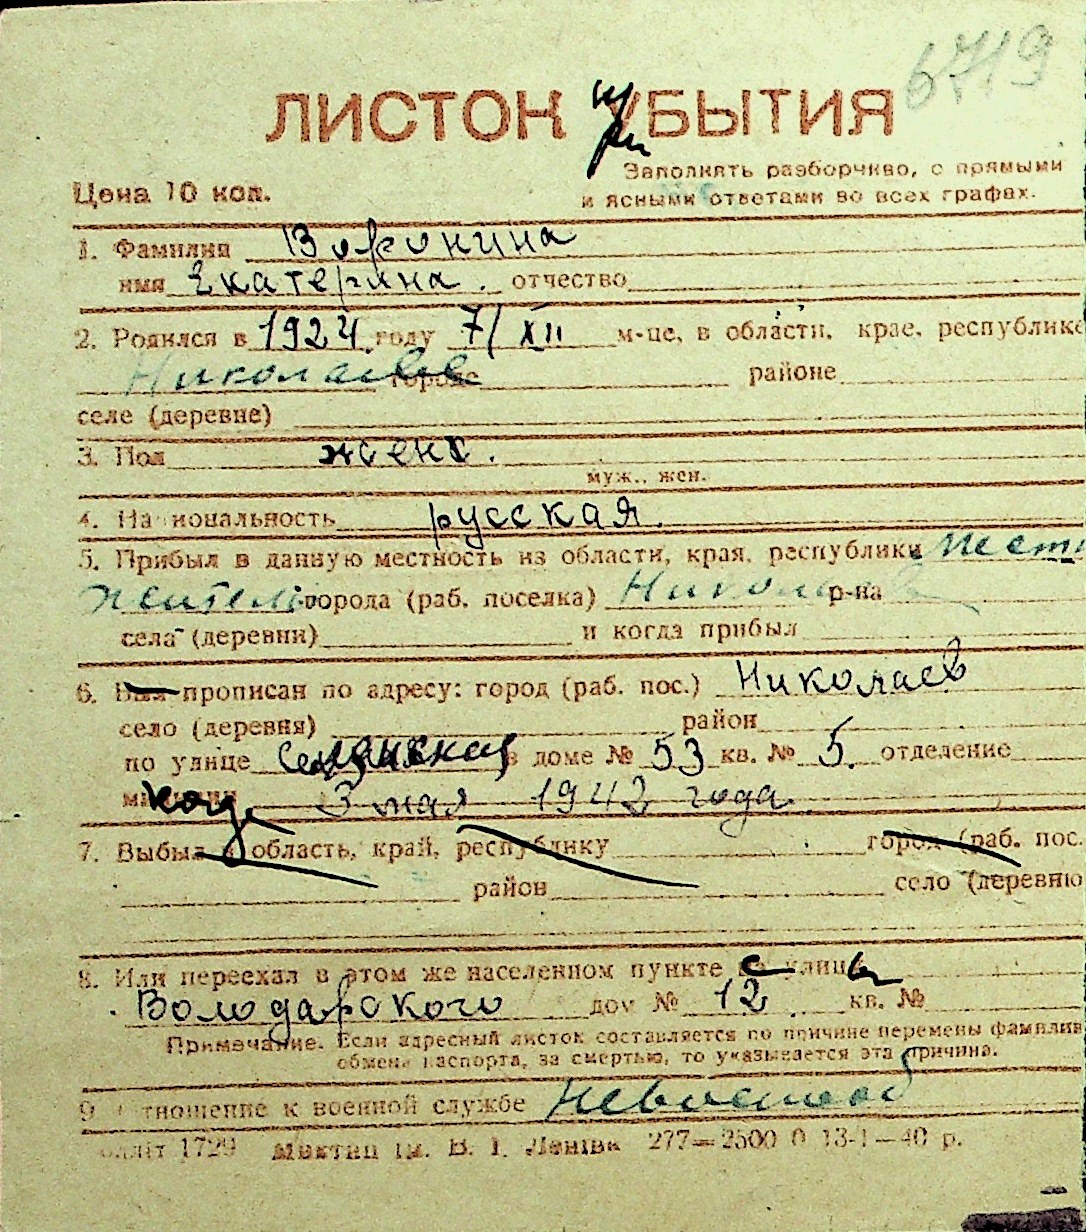 6719
ЛИСТОК при УБЫТИЯ
Заполнять разборчиво, с прямыми
Цена 10 коп.
и ясными ответами во всех графах.
1. Фамилия Воронина
имя Екатерина. отчество
2. Родился в 1924 году 7/XII м-це, в области, крае, республике
Николаеве городе районе
селе (деревне)
3. Пол женс.
муж., жен.
4. Национальность русская.
5. Прибыл в данную местность из области, края, республики мест.
житель города (раб. поселка) Николаев р-на
села (деревни) и когда прибыл
6. Был прописан по адресу: город (раб. пос.) Николаев
село (деревня) район
по улице в доме № 53 кв. № 5. отделение
милиции когда 3 мая 1942 года.
7. Выбыл в область, край, республику город (раб. пос.
район село (деревню
8. Или переехал в этом же населенном пункте с улицы
Володарского дом № 12 кв. №
Примечание. Если адресный листок составляется по причине перемены фамилии
обмена паспорта, за смертью, то указывается эта причина.
9. Отношение к военной службе невоеннооб
1729 ім. В. І. Леніна 277—2500 0 13-1—40 р.